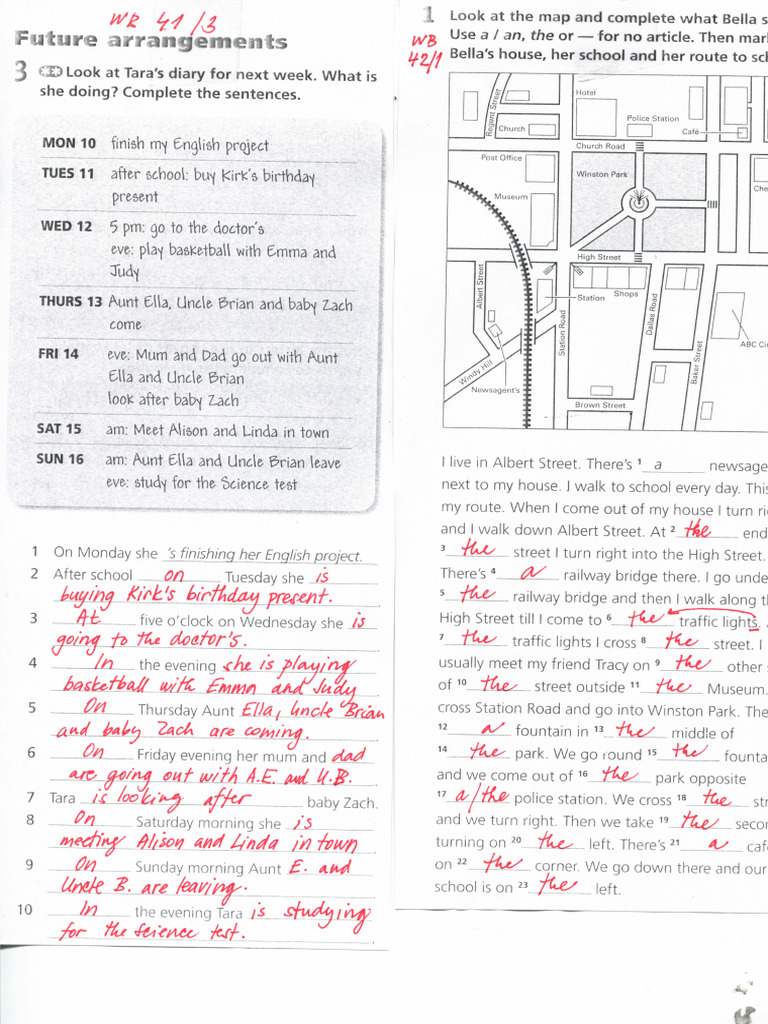 WB 41/3
Future arrangements
3 Look at Tara's diary for next week. What is
she doing? Complete the sentences.
MON 10 finish my English project
TUES 11 after school: buy Kirk's birthday
present
WED 12 5 pm: go to the doctor's
eve: play basketball with Emma and
Judy
THURS 13 Aunt Ella, Uncle Brian and baby Zach
come
FRI 14 eve: Mum and Dad go out with Aunt
Ella and Uncle Brian
look after baby Zach
SAT 15 am: Meet Alison and Linda in town
SUN 16 am: Aunt Ella and Uncle Brian leave
eve: study for the Science test
1 On Monday she 's finishing her English project.
2 After school on Tuesday she is
buying Kirk's birthday present.
3 At five o'clock on Wednesday she is
going to the doctor's.
4 In the evening she is playing
basketball with Emma and Judy
5 On Thursday Aunt Ella, Uncle Brian
and baby Zach are coming.
6 On Friday evening her mum and dad
are going out with A.E. and U.B.
7 Tara is looking after baby Zach.
8 On Saturday morning she is
meeting Alison and Linda in town
9 On Sunday morning Aunt E. and
Uncle B. are leaving.
10 In the evening Tara is studying
for the science test.
1 Look at the map and complete what Bella s
WB 42/1
Use a / an, the or — for no article. Then mar
Bella's house, her school and her route to sc
Regent Street
Hotel
Church
Police Station
Café
Church Road
Post Office
Winston Park
Museum
Che
High Street
Albert Street
Station
Shops
Station Road
Dallas Road
Baker Street
ABC Ci
Windy Hill
Newsagent's
Brown Street
I live in Albert Street. There's 1 a newsage
next to my house. I walk to school every day. This
my route. When I come out of my house I turn ri
and I walk down Albert Street. At 2 the end
3 the street I turn right into the High Street.
There's 4 a railway bridge there. I go unde
5 the railway bridge and then I walk along th
High Street till I come to 6 the traffic lights.
7 the traffic lights I cross 8 the street. I
usually meet my friend Tracy on 9 the other s
of 10 the street outside 11 the Museum.
cross Station Road and go into Winston Park. The
12 a fountain in 13 the middle of
14 the park. We go round 15 the founta
and we come out of 16 the park opposite
17 a/the police station. We cross 18 the str
and we turn right. Then we take 19 the secon
turning on 20 the left. There's 21 a café
on 22 the corner. We go down there and our
school is on 23 the left.